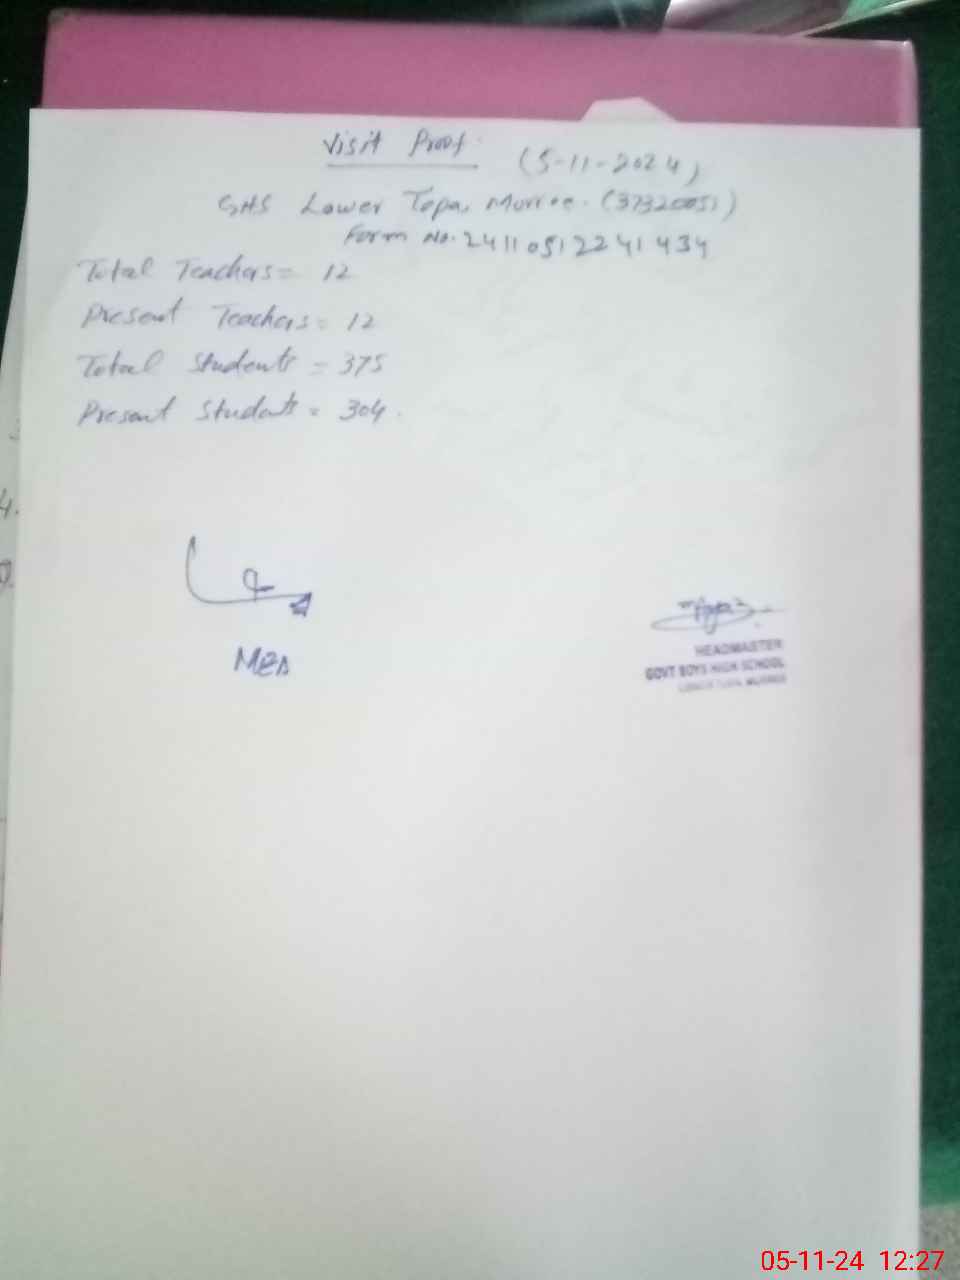 Visit Proof.
(5-11-2024)
GHS Lower Topa, Murree. (37320051)
Form No. 241105122241434
Total Teachers = 12
Present Teachers = 12
Total Students = 375
Present Students = 304.
MEA
HEADMASTER
GOVT BOYS HIGH SCHOOL
LOWER TOPA MURREE
05-11-24 12:27